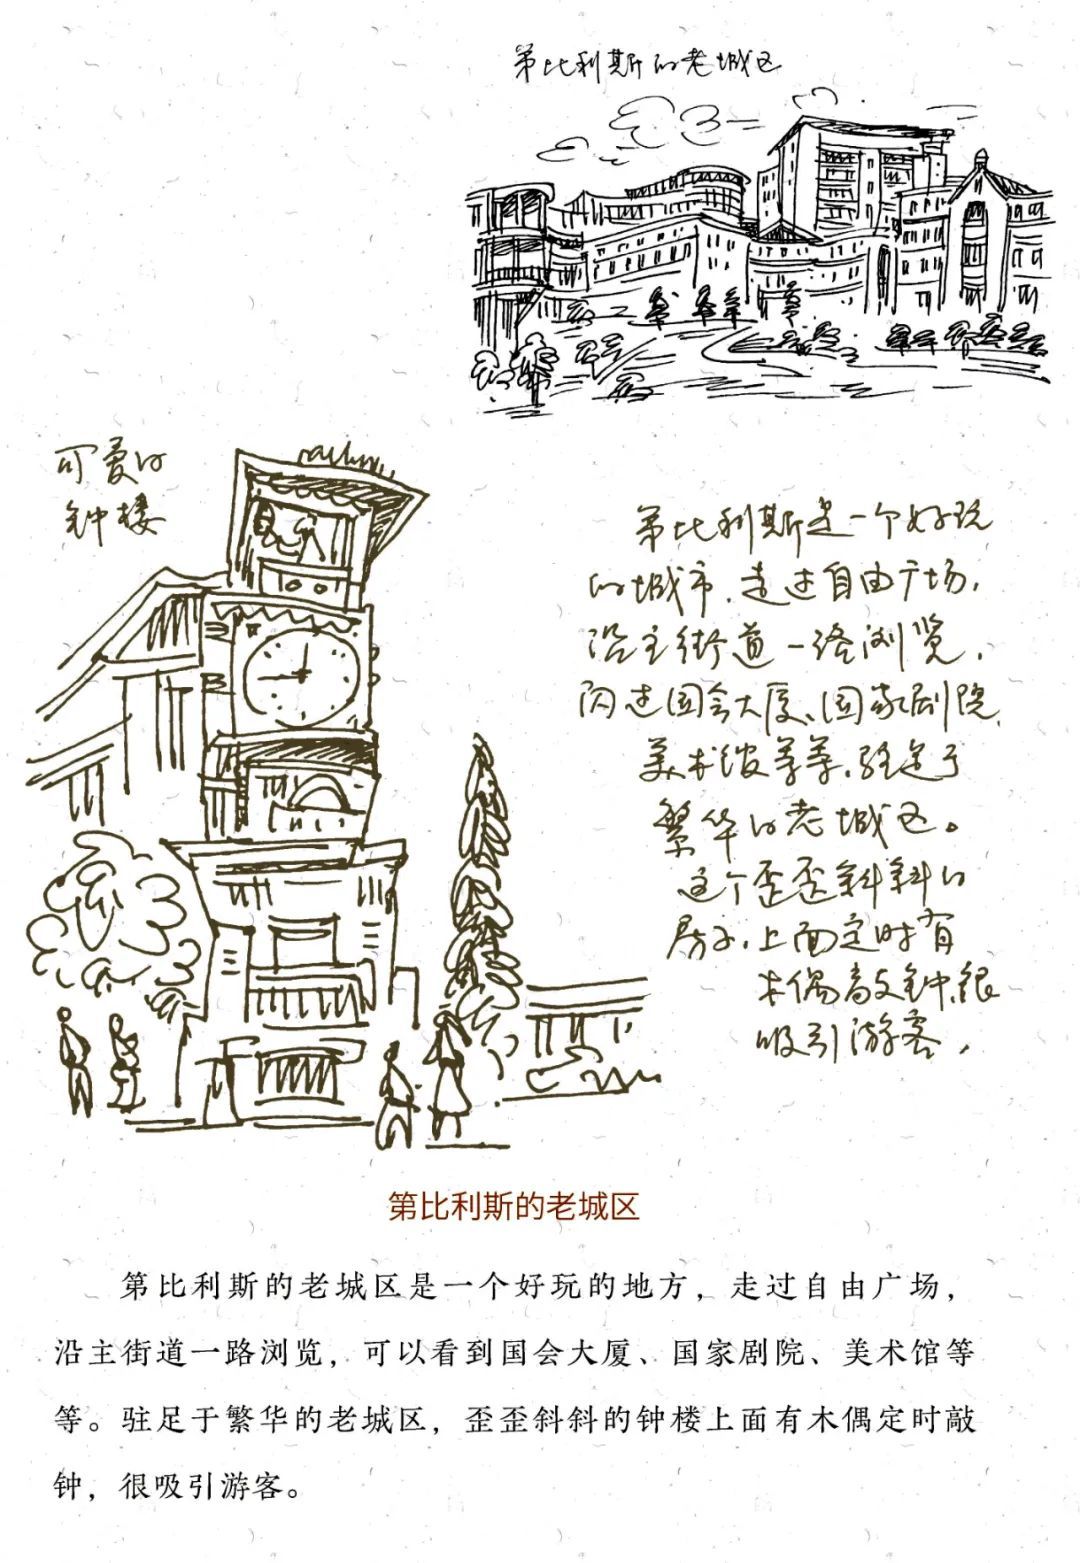 第比利斯的老城区
可爱的
钟楼
第比利斯是一个好玩
的城市.走过自由广场,
沿主街道一路浏览,
闪过国会大厦、国家剧院,
美术馆等等.驻足于
繁华的老城区。
这个歪歪斜斜的
房子,上面定时有
木偶敲钟,很
吸引游客,
第比利斯的老城区
第比利斯的老城区是一个好玩的地方，走过自由广场，
沿主街道一路浏览，可以看到国会大厦、国家剧院、美术馆等
等。驻足于繁华的老城区，歪歪斜斜的钟楼上面有木偶定时敲
钟，很吸引游客。